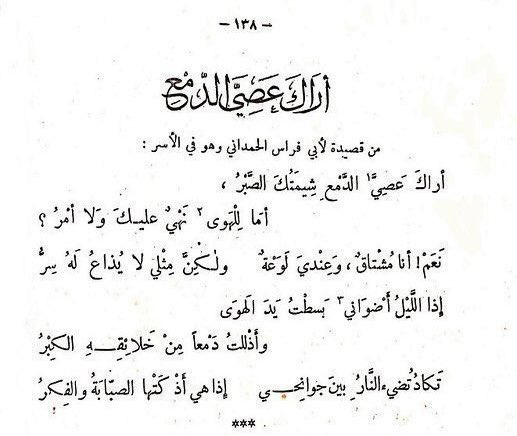 - ١٣٨ -
أراكَ عَصِيَّ الدَّمعِ
من قصيدة لأبي فراس الحمداني وهو في الأسر :
أراكَ عَصِيَّ١ الدَّمْعِ شِيمَتُكَ الصَّبْرُ ،
أمَا لِلْهَوى ٢ نَهْيٌ عليكَ وَلا أمْرُ ؟
نَعَمْ! أنا مُشْتاقٌ ، وَعِنْديَ لَوْعَةٌ ولكِنَّ مِثْلي لا يُذاعُ لَهُ سِرُّ
إذا اللَّيْلُ أضْواني ٣ بَسطْتُ يَدَ الهَوَى
وَأذْللتُ دَمْعاً مِنْ خَلائِقِهِ الكِبْرُ
تَكادُ تُضيءُ النَّارُ بينَ جوانِحي إذا هي أذْكَتْها الصَّبابَةُ والفِكرُ
***